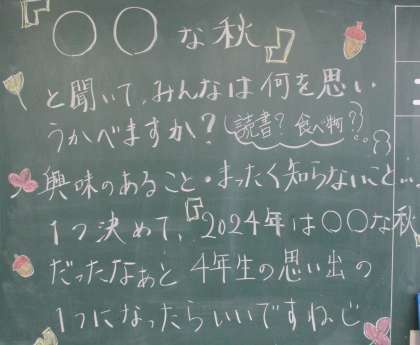 『○○な秋』
と聞いて、みんなは何を思い
うかべますか?(読書?食べ物??)
興味のあること・まったく知らないこと…
1つ決めて、『2024年は○○な秋
だったなぁと4年生の思い出の
1つになったらいいですね。